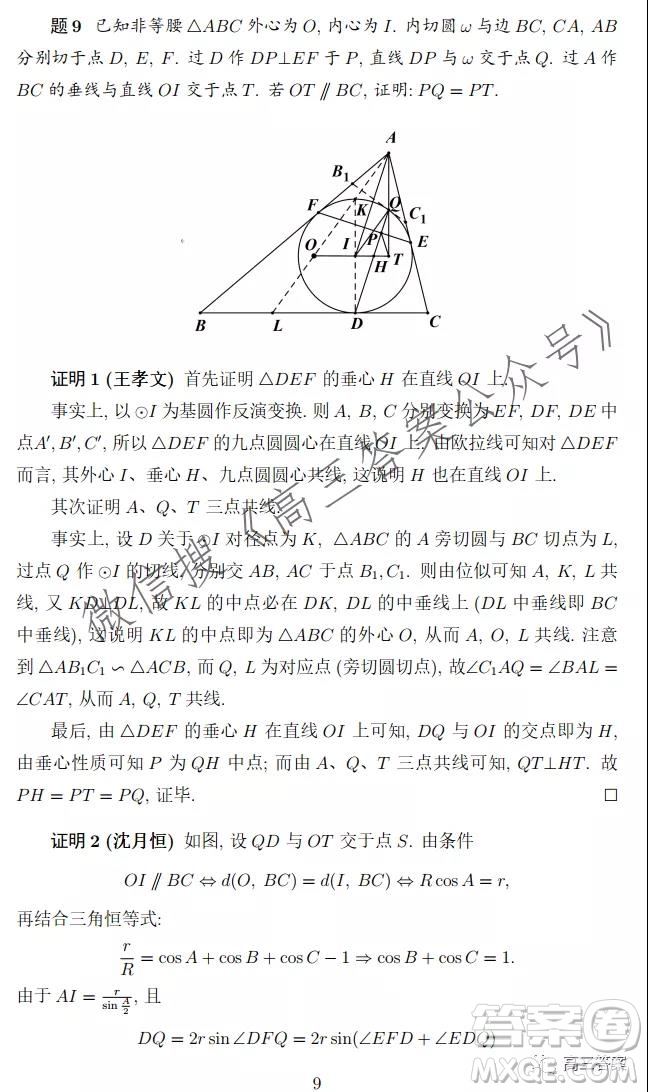 题 9 已知非等腰 △ABC 外心为 O, 内心为 I. 内切圆 ω 与边 BC, CA, AB
分别切于点 D, E, F. 过 D 作 DP⊥EF 于 P, 直线 DP 与 ω 交于点 Q. 过 A 作
BC 的垂线与直线 OI 交于点 T. 若 OT ∥ BC, 证明: PQ = PT.
A
B₁
F
K
Q
C₁
P
E
O
I
H
T
B
L
D
C
证明 1 (王孝文) 首先证明 △DEF 的垂心 H 在直线 OI 上.
事实上, 以 ⊙I 为基圆作反演变换. 则 A, B, C 分别变换为 EF, DF, DE 中
点 A′, B′, C′, 所以 △DEF 的九点圆圆心在直线 OI 上. 由欧拉线可知对 △DEF
而言, 其外心 I、垂心 H、九点圆圆心共线, 这说明 H 也在直线 OI 上.
其次证明 A、Q、T 三点共线.
事实上, 设 D 关于 ⊙I 对径点为 K, △ABC 的 A 旁切圆与 BC 切点为 L,
过点 Q 作 ⊙I 的切线, 分别交 AB, AC 于点 B₁, C₁. 则由位似可知 A, K, L 共
线, 又 KD⊥DL, 故 KL 的中点必在 DK, DL 的中垂线上 (DL 中垂线即 BC
中垂线), 这说明 KL 的中点即为 △ABC 的外心 O, 从而 A, O, L 共线. 注意
到 △AB₁C₁ ∽ △ACB, 而 Q, L 为对应点 (旁切圆切点), 故∠C₁AQ = ∠BAL =
∠CAT, 从而 A, Q, T 共线.
最后, 由 △DEF 的垂心 H 在直线 OI 上可知, DQ 与 OI 的交点即为 H,
由垂心性质可知 P 为 QH 中点; 而由 A、Q、T 三点共线可知, QT⊥HT. 故
PH = PT = PQ, 证毕. □
证明 2 (沈月恒) 如图, 设 QD 与 OT 交于点 S. 由条件
OI ∥ BC ⇔ d(O, BC) = d(I, BC) ⇔ R cos A = r,
再结合三角恒等式:
r/R = cos A + cos B + cos C − 1 ⇒ cos B + cos C = 1.
由于 AI = r/sin A/2, 且
DQ = 2r sin ∠DFQ = 2r sin(∠EFD + ∠EDQ)
9
微信搜《高三答案公众号》
答案卷
高三答案